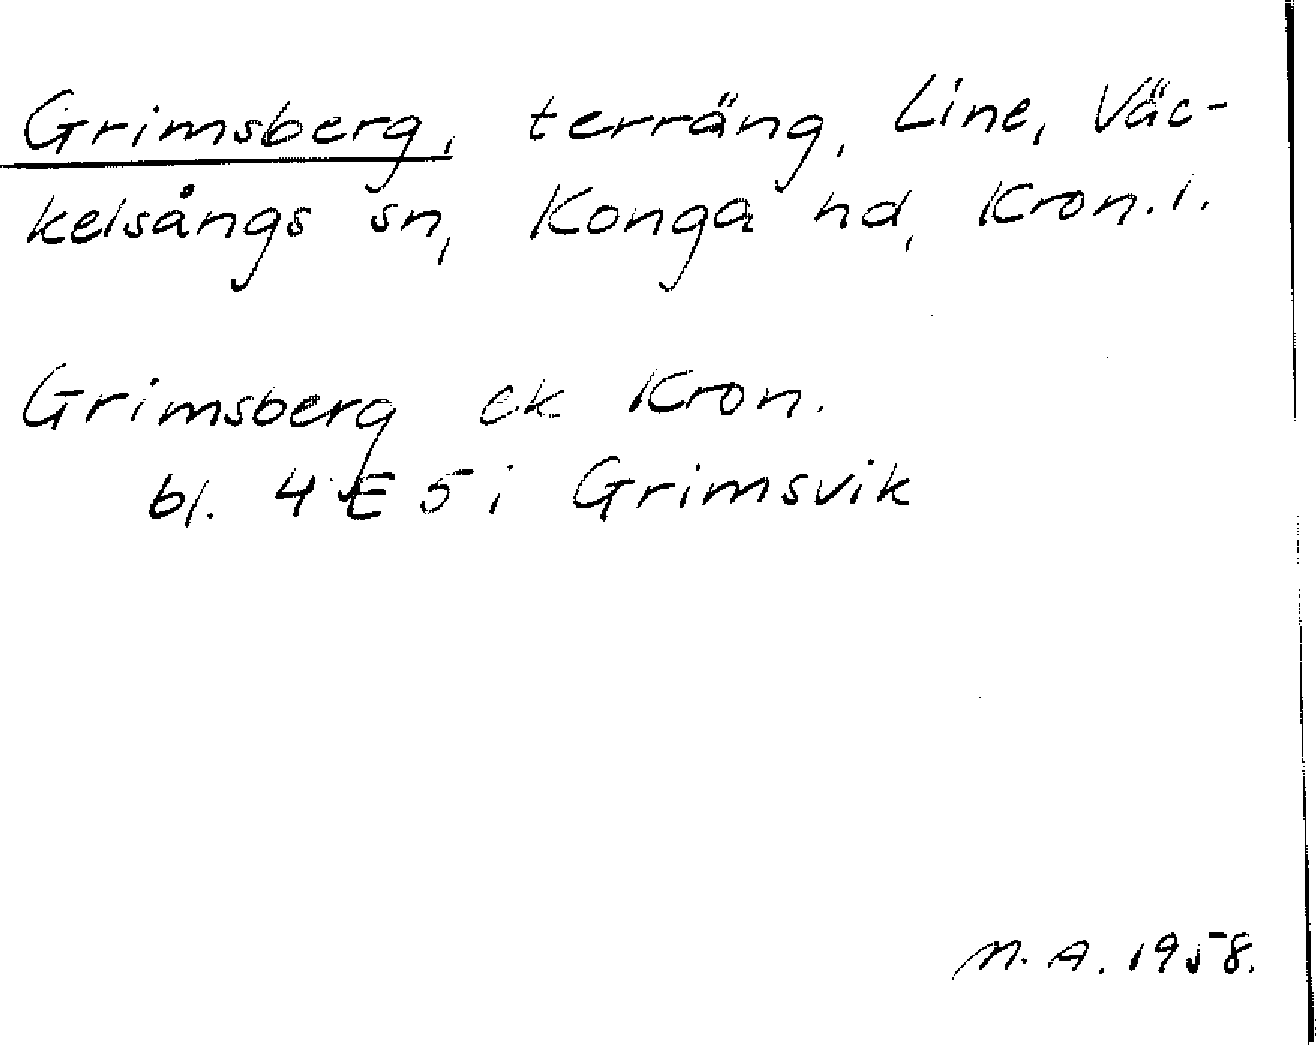 Grimsberg, terräng, Line, Väc-
kelsångs sn, Konga hd, Kron.l.
Grimsberg ek Kron.
bl. 4 E 5 i Grimsvik
M. A. 1958.